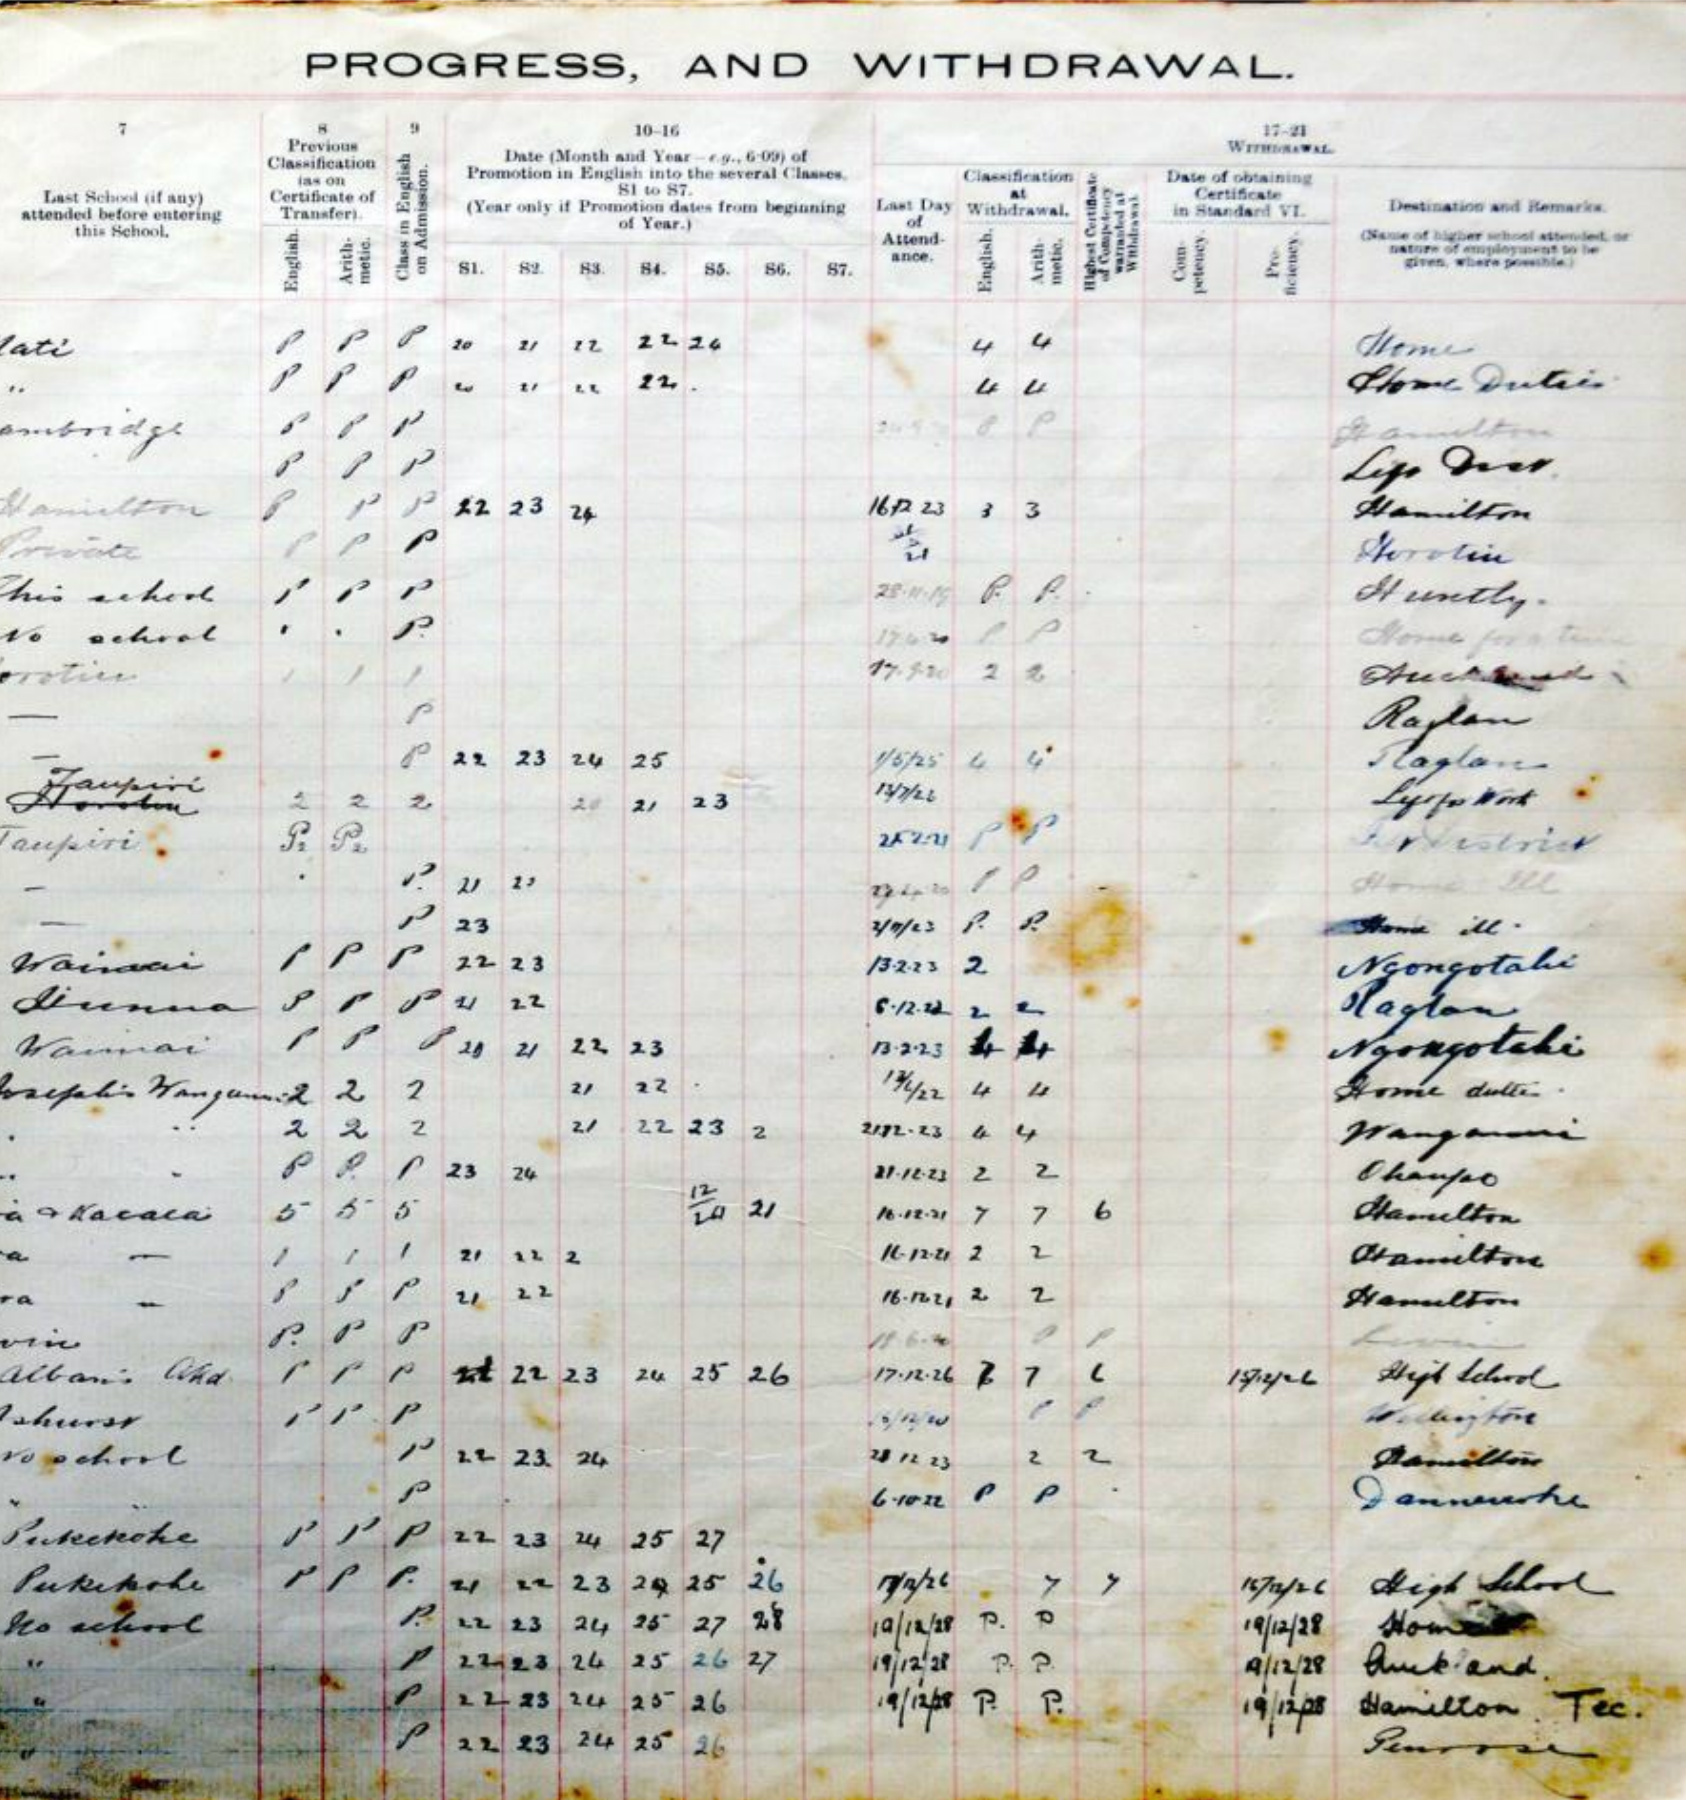 PROGRESS, AND WITHDRAWAL.
7 8 9 10-16 17-21
Last School (if any) attended before entering this School.
Previous Classification (as on Certificate of Transfer).
English. Arithmetic.
Class in English on Admission.
Date (Month and Year—e.g., 6·09) of Promotion in English into the several Classes, S1 to S7.
(Year only if Promotion dates from beginning of Year.)
S1. S2. S3. S4. S5. S6. S7.
WITHDRAWAL.
Last Day of Attendance.
Classification at Withdrawal.
English. Arithmetic.
Highest Certificate of Competency warranted at Withdrawal.
Date of obtaining Certificate in Standard VI.
Competency. Proficiency.
Destination and Remarks.
(Name of higher school attended, or nature of employment to be given, where possible.)
P P P 20 21 22 22 24 4 4 Home
" P P P 20 21 22 22 4 4 Home Duties
ambridge P P P P P Hamilton
P P P Left Dist.
Hamilton P P P 22 23 24 16 12 23 3 3 Hamilton
Private P P P 21 Horotiu
this school P P P 28·11·19 P. P. Huntly.
No school P. P P Home for a time
orotiu 1 1 1 17·9·20 2 2
— P Raglan
— P 22 23 24 25 1/5/25 4 4 Raglan
Taupiri Horotiu 2 2 2 20 21 23 Work
Taupiri P2 P2 P P District
— P. 21 P P Home Ill
— P 23 P. P. Home ill.
P P P 22 23 13·2·23 2 Ngongotahi
P P P 21 22 2 2 Raglan
P P P 20 21 22 23 13·2·23 4 4 Ngongotahi
osephs Wanganui 2 2 2 21 22 4 4 Home
" 2 2 2 21 22 23 2 4 4 Wanganui
" " P P. P 23 24 21·12·23 2 2 Ohaupo
5 5 5 12/20 21 16·12·21 7 7 6 Hamilton
a — 1 1 1 21 22 2 16·12·21 2 2 Hamilton
ra — P P P 21 22 16·12·21 2 2 Hamilton
vin P. P P P P
Alban's Akd. P P P 22 23 24 25 26 17·12·26 7 6 15/12/26 High School
shurst P P P P P Wellington
No school P 22 23 24 2 2 Hamilton
" " P 6·10·22 P P Dannevirke
Pukekohe P P P 22 23 24 25 27
Pukekohe P P P. 21 22 23 24 25 26 7 7 High School
No school P. 22 23 24 25 27 28 19/12/28 P. P 19/12/28
" P 22 23 24 25 26 27 19/12/28 P. P. 19/12/28 Auckland.
" P 22 23 24 25 26 19/12/28 P. P. 19/12/28 Hamilton Tec.
" P 22 23 24 25 26 Penrose